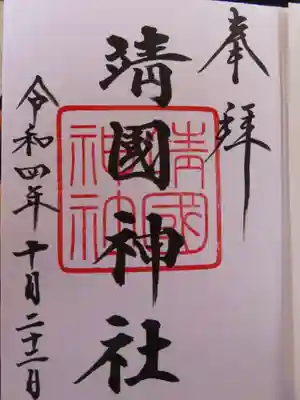 奉拝
靖國神社
靖國
神社
令和四年十月二十二日